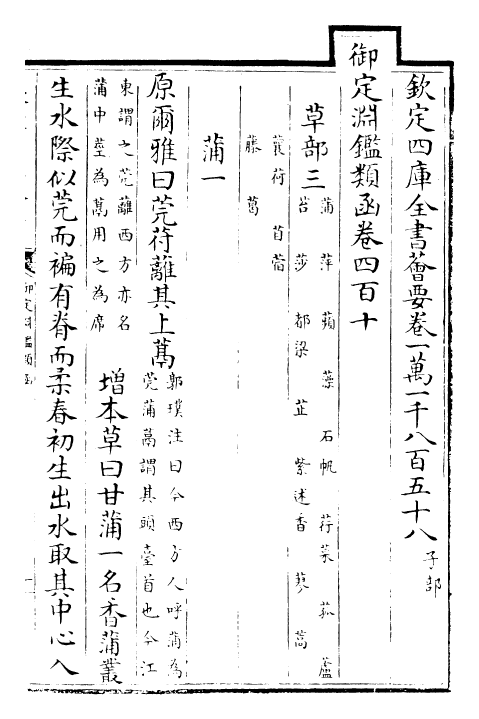 欽定四庫全書薈要卷一萬一千八百五十八 子部
御定淵鑑類函卷四百十
草部三 蒲 萍 蘋 藻 石帆 荇菜 菰 蘆
苔 莎 都梁 芷 紫述香 蓼 蒿
蘘荷 苜蓿
藤 蔦
蒲一
原爾雅曰莞苻蘺其上蒚 郭璞注曰今西方人呼蒲為
莞蒲蒚謂其頭臺首也今江
東謂之莞蘺西方亦名
蒲中莖為蒚用之為席
增本草曰甘蒲一名香蒲叢
生水際似莞而褊有脊而柔春初生出水取其中心入